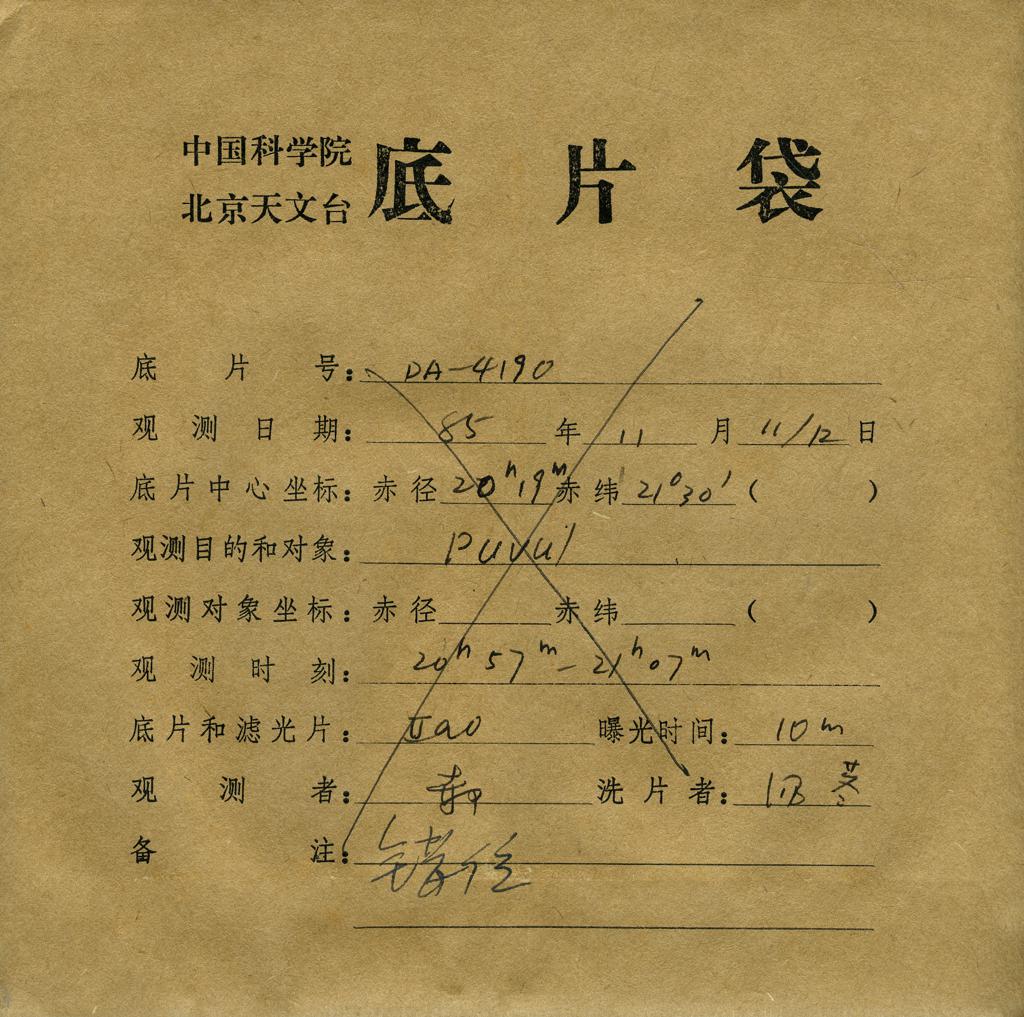 中国科学院
北京天文台
底片袋
底片号： DA-4190
观测日期： 85 年 11 月 11/12 日
底片中心坐标：赤径 20h19m 赤纬 21°30' ( )
观测目的和对象：
观测对象坐标：赤径 赤纬 ( )
观测时刻： 20h57m - 21h07m
底片和滤光片： IIaO 曝光时间： 10m
观测者： 洗片者：
备注： 错位